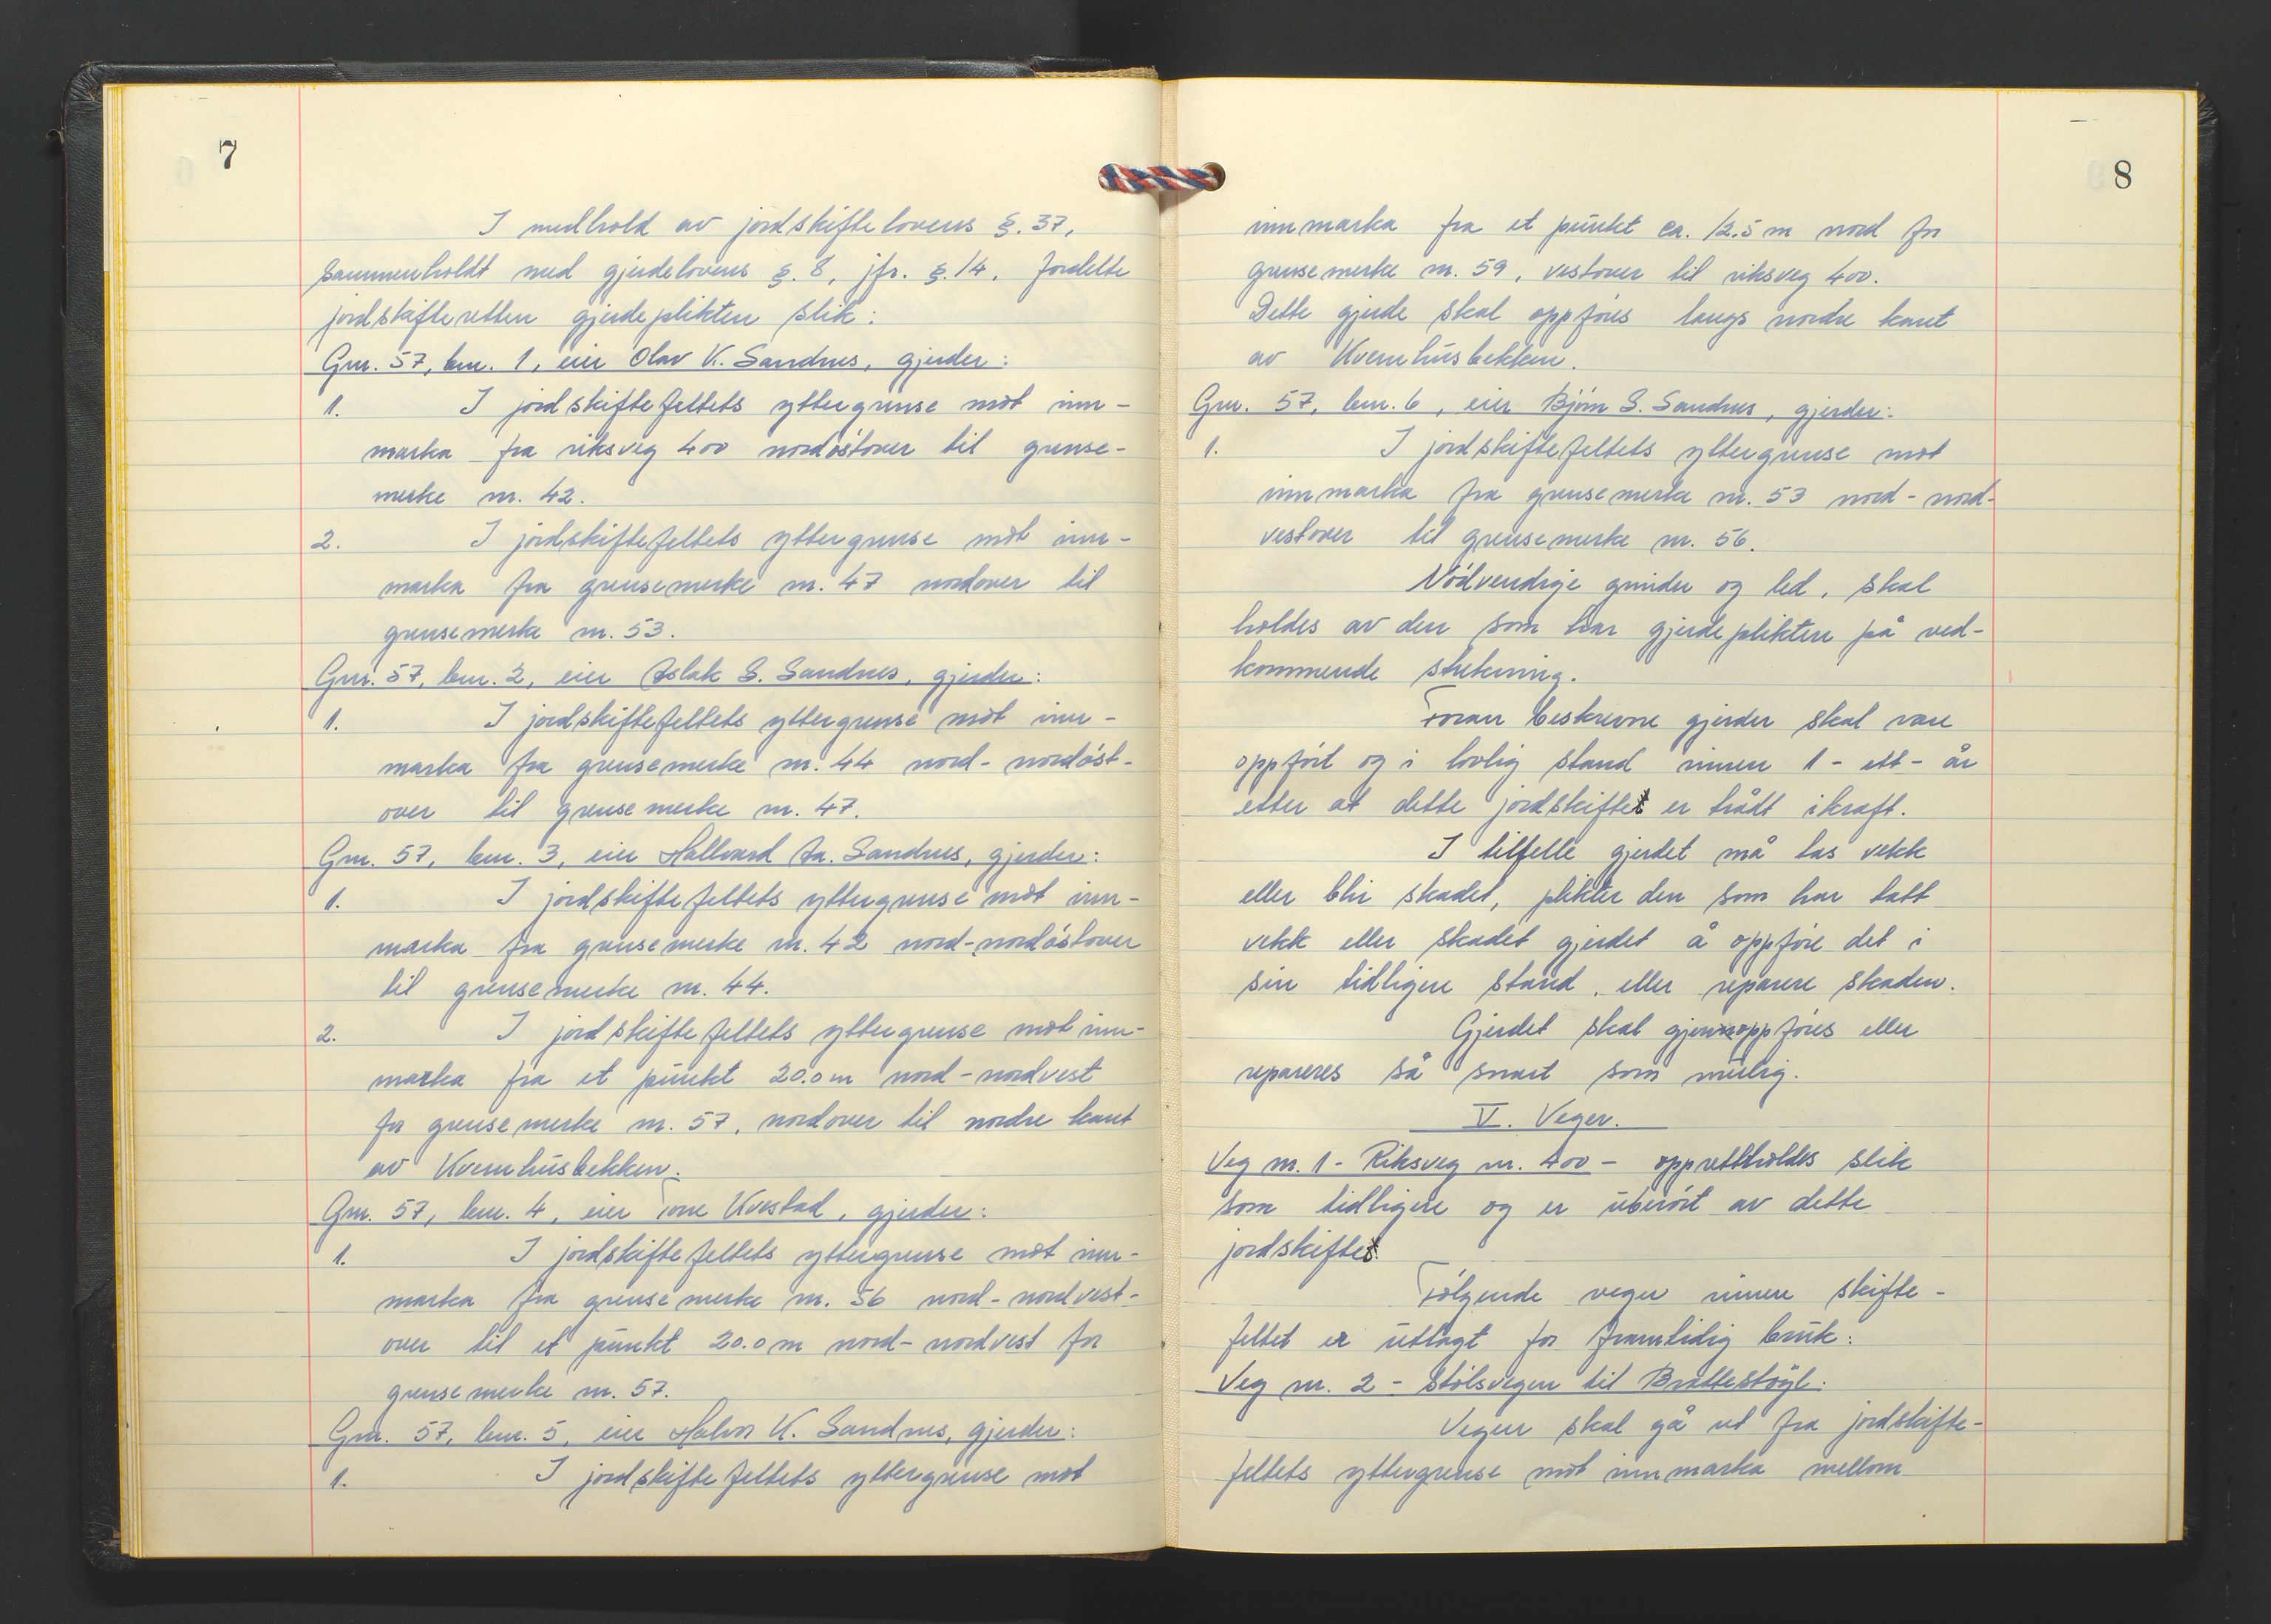 7
I medhold av jordskiftelovens §. 37,
sammenholdt med gjerdelovens §. 8, jfr. §. 14. fordelte
jordskifteretten gjerdeplikten slik:
Gnr. 57, bnr. 1, eier Olav K. Sandnes, gjerder:
1. I jordskiftefeltets yttergrense mot inn-
marka fra riksveg 400 nordøstover til grense-
merke nr. 42.
2. I jordskiftefeltets yttergrense mot inn-
marka fra grensemerke nr. 47 nordover til
grensemerke nr. 53.
Gnr. 57, bnr. 2, eier Aslak S. Sandnes, gjerder:
1. I jordskiftefeltets yttergrense mot inn-
marka fra grensemerke nr. 44 nord-nordøst-
over til grensemerke nr. 47.
Gnr. 57, bnr. 3, eier Hallvard Aa. Sandnes, gjerder:
1. I jordskiftefeltets yttergrense mot inn-
marka fra grensemerke nr. 42 nord-nordøstover
til grensemerke nr. 44.
2. I jordskiftefeltets yttergrense mot inn-
marka fra et punkt 20.0 m nord-nordvest
for grensemerke nr. 57, nordover til nordre kant
av Kvernhusbekken.
Gnr. 57, bnr. 4, eier Tone Kvestad, gjerder:
1. I jordskiftefeltets yttergrense mot inn-
marka fra grensemerke nr. 56 nord-nordvest-
over til et punkt 20.0 m nord-nordvest for
grensemerke nr. 57.
Gnr. 57, bnr. 5, eier Halvor K. Sandnes, gjerder:
1. I jordskiftefeltets yttergrense mot
8
innmarka fra et punkt ca. 12.5 m nord for
grensemerke nr. 59, vestover til riksveg 400.
Dette gjerde skal oppføres langs nordre kant
av Kvernhusbekken.
Gnr. 57, bnr. 6, eier Bjørn S. Sandnes, gjerder:
1. I jordskiftefeltets yttergrense mot
innmarka fra grensemerke nr. 53 nord-nord-
vestover til grensemerke nr. 56.
Nødvendige grinder og led, skal
holdes av den som har gjerdeplikten på ved-
kommende strekning.
Foran beskrevne gjerder skal være
oppført og i lovlig stand innen 1 - ett - år
etter at dette jordskiftet er trådt ikraft.
I tilfelle gjerdet må tas vekk
eller blir skadet, plikter den som har tatt
vekk eller skadet gjerdet å oppføre det i
sin tidligere stand, eller reparere skaden.
Gjerdet skal gjenoppføres eller
repareres så snart som mulig.
V. Veger.
Veg nr. 1 - Riksveg nr. 400 - opprettholdes slik
som tidligere og er uberørt av dette
jordskiftet.
Følgende veger innen skifte-
feltet er utlagt for framtidig bruk:
Veg nr. 2 - Stølsvegen til Brattestøyl:
Vegen skal gå ut fra jordskifte-
feltets yttergrense mot innmarka mellom